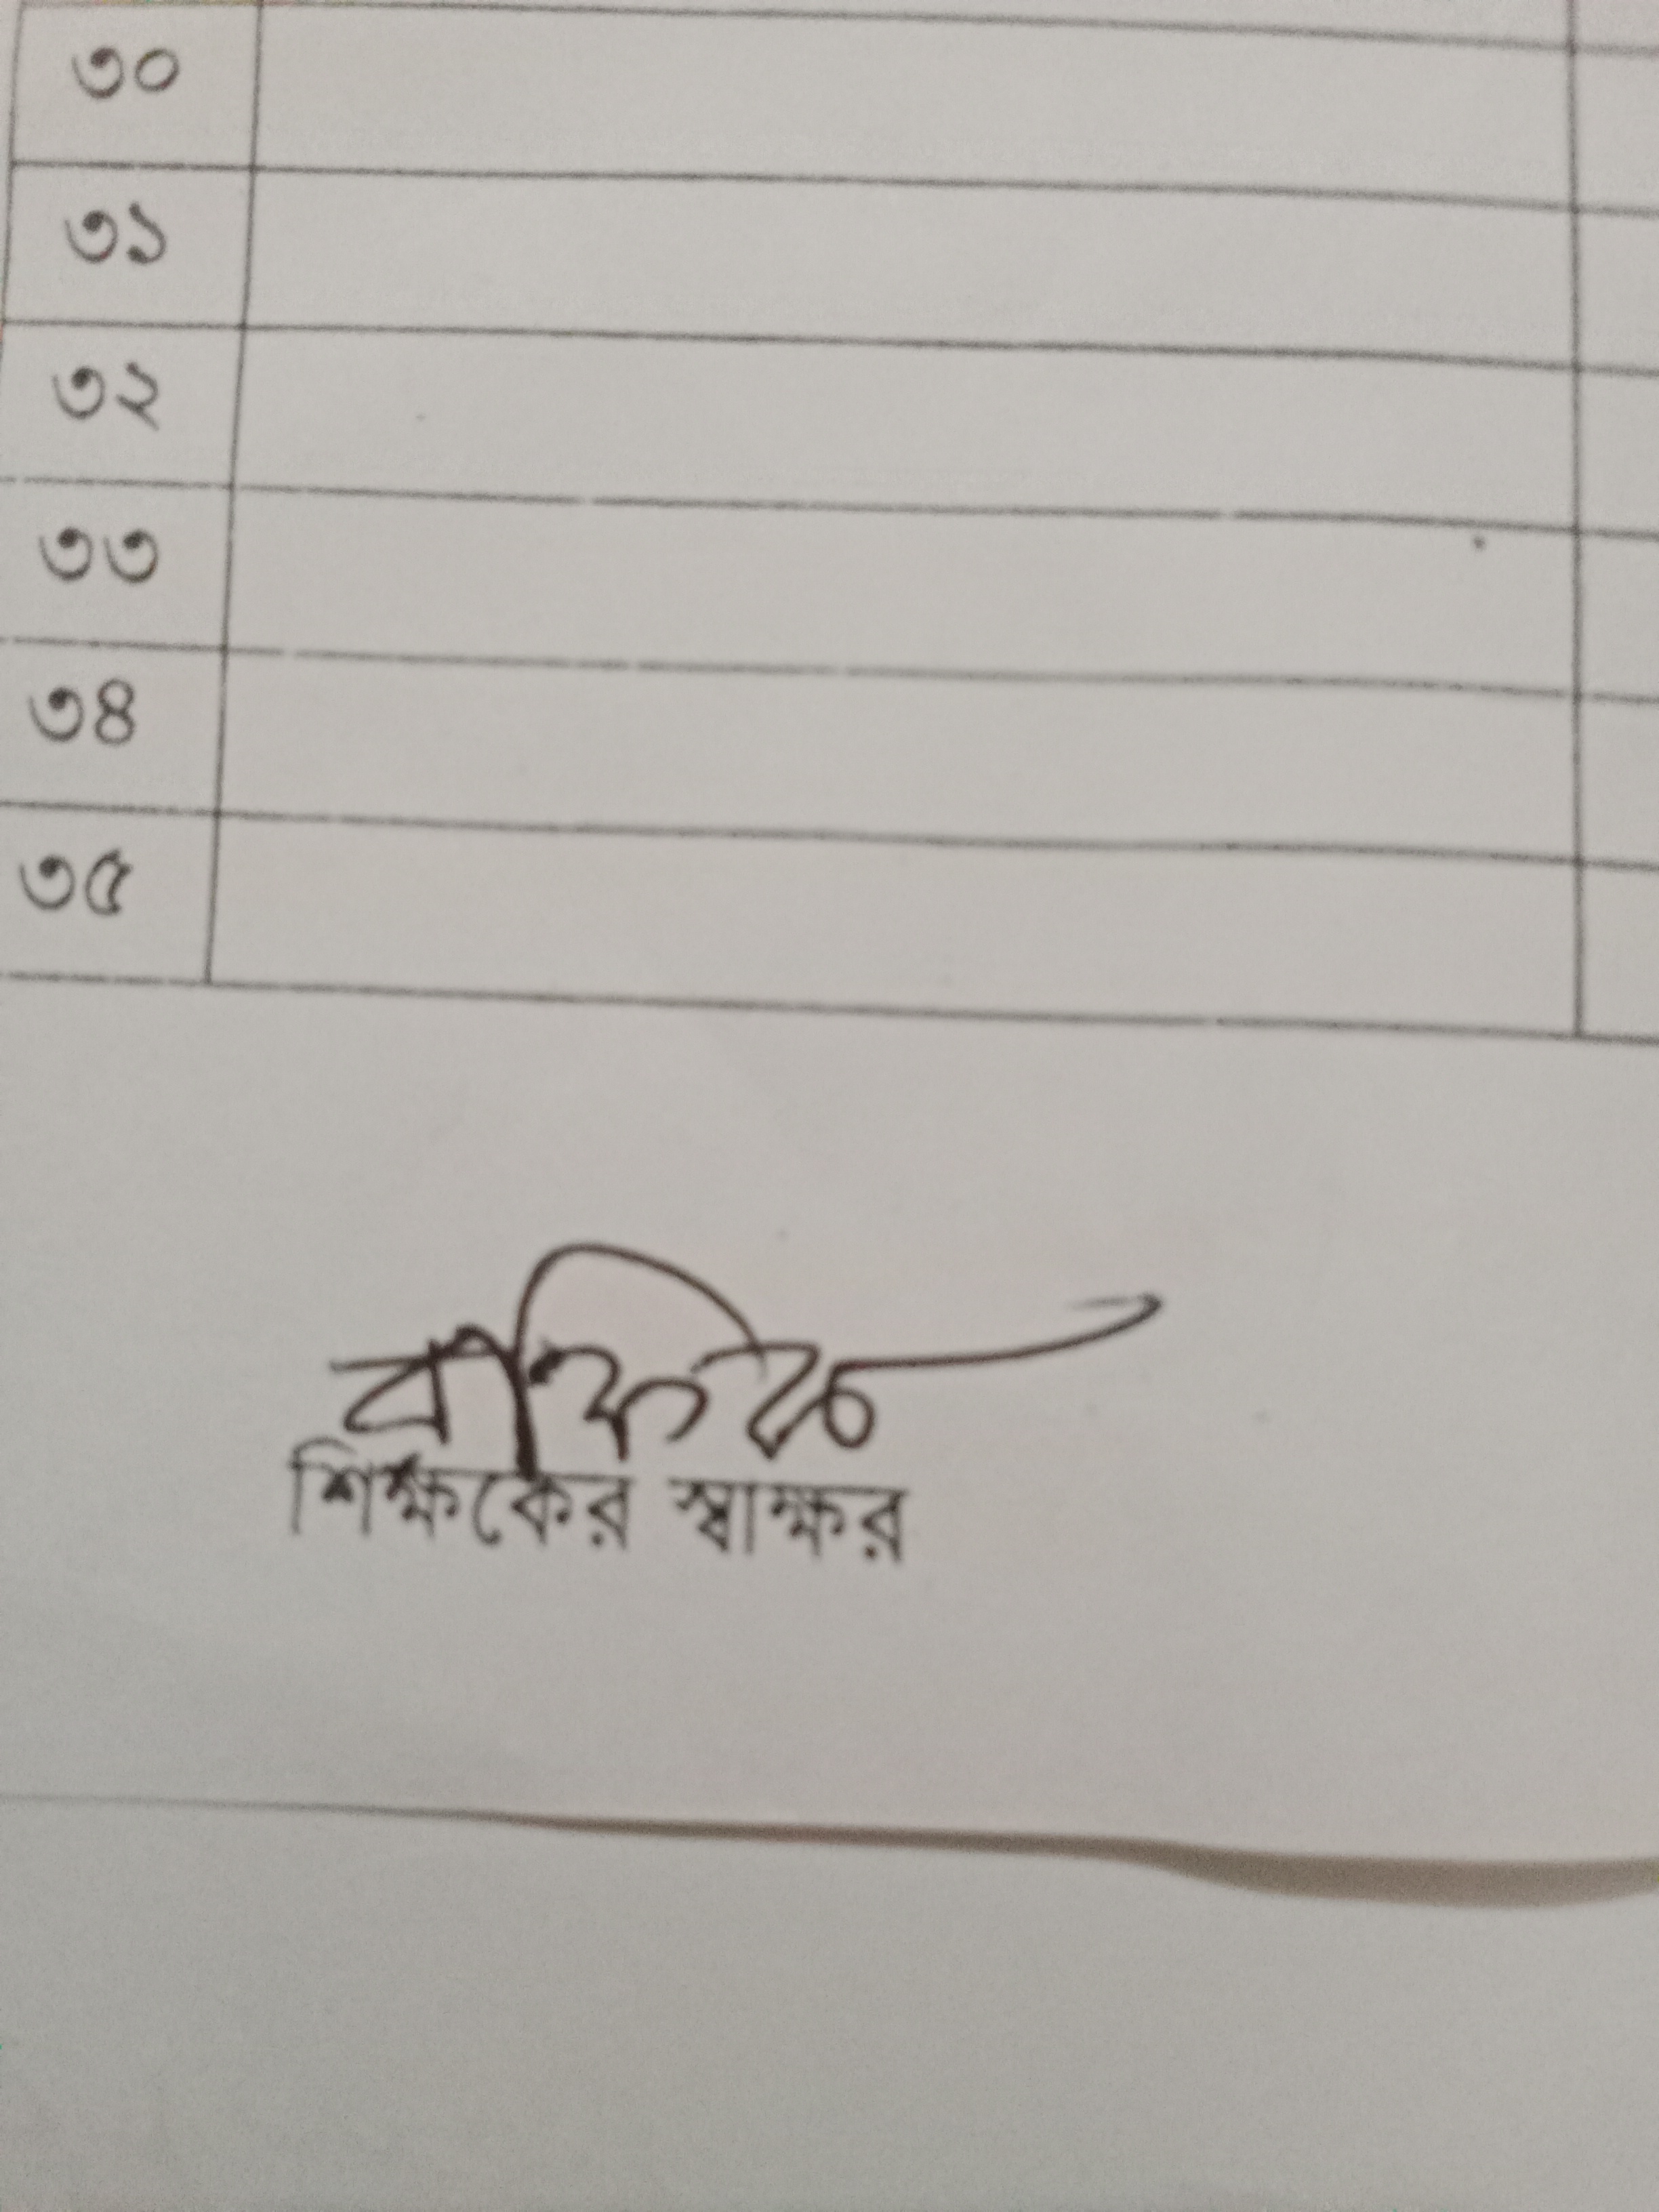 ৩০
৩১
৩২
৩৩
৩৪
৩৫
শিক্ষকের স্বাক্ষর